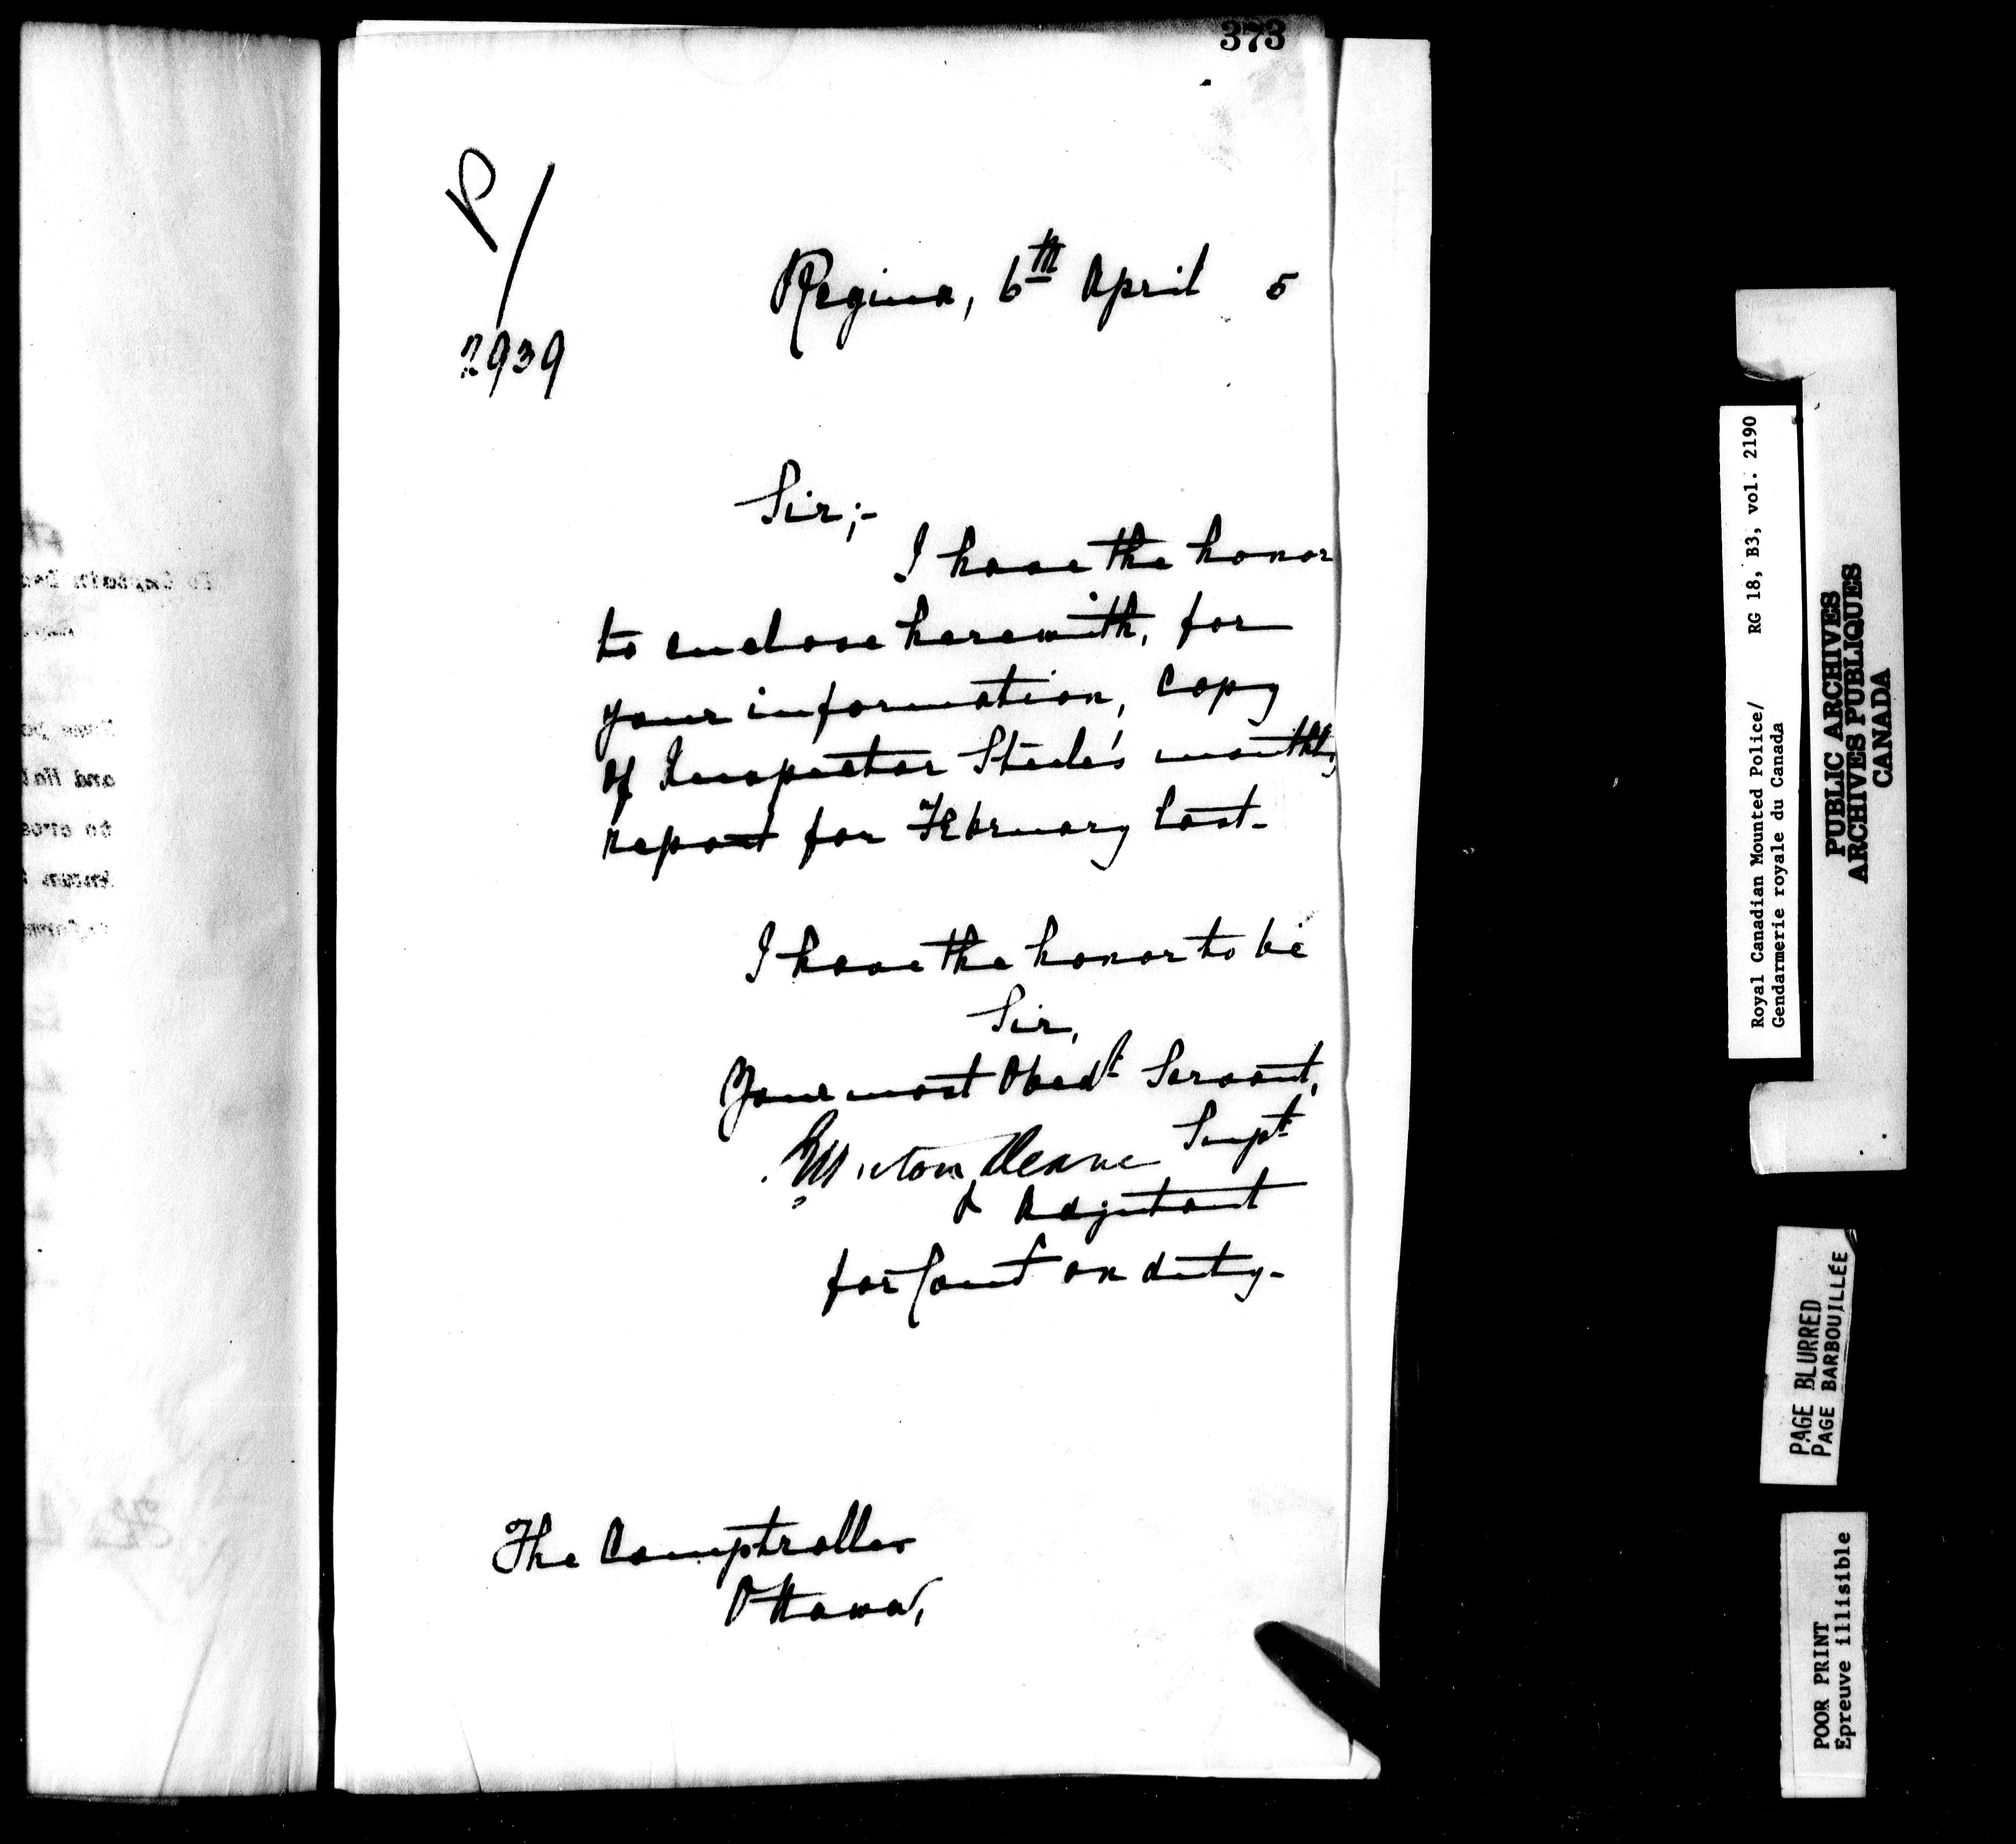 373
P/
2939
Regina, 6th April 5
Sir;-
I have the honor
to enclose herewith, for
your information, copy
of Inspector Steele's monthly
report for February last-
I have the honor to be
Sir,
Your most Obedt Servant,
Burton Deane Supt
& Adjutant
for Comt on duty-
The Comptroller
Ottawa,
To Captain
Royal Canadian Mounted Police/ RG 18, B3, vol. 2190
Gendarmerie royale du Canada
PUBLIC ARCHIVES
ARCHIVES PUBLIQUES
CANADA
PAGE BLURRED
PAGE BARBOUILLÉE
POOR PRINT
Epreuve illisible